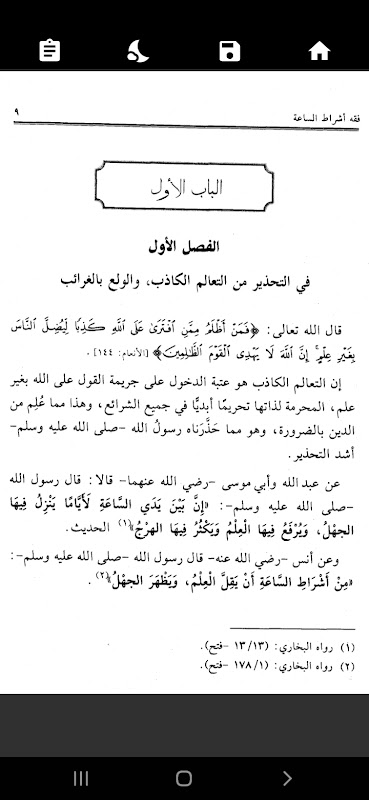 فقه أشراط الساعة ٩
الباب الأول
الفصل الأول
في التحذير من التعالم الكاذب، والولع بالغرائب
قال الله تعالى: ﴿فَمَنْ أَظْلَمُ مِمَّنِ افْتَرَىٰ عَلَى اللَّهِ كَذِبًا لِيُضِلَّ النَّاسَ
بِغَيْرِ عِلْمٍ إِنَّ اللَّهَ لَا يَهْدِي الْقَوْمَ الظَّالِمِينَ﴾ [الأنعام: ١٤٤] .
إن التعالم الكاذب هو عتبة الدخول على جريمة القول على الله بغير
علم، المحرمة لذاتها تحريمًا أبديًّا في جميع الشرائع، وهذا مما عُلِم من
الدين بالضرورة، وهو مما حَذَّرَناه رسولُ الله -صلى الله عليه وسلم-
أشد التحذير.
عن عبد الله وأبي موسى -رضي الله عنهما- قالا: قال رسول الله
-صلى الله عليه وسلم-: «إِنَّ بَيْنَ يَدَي السَّاعَةِ لَأَيَّامًا يَنْزِلُ فِيهَا
الجهْلُ، وَيُرْفَعُ فِيهَا الْعِلْمُ وَيَكْثُرُ فِيهَا الهرْجُ»(١) الحديث.
وعن أنس -رضي الله عنه- قال رسول الله -صلى الله عليه وسلم-:
«مِنْ أَشْرَاطِ السَّاعَةِ أَنْ يَقِلَّ الْعِلْمُ، وَيَظْهَرَ الجهْلُ»(٢) .
(١) رواه البخاري: (١٣/١٣ -فتح).
(٢) رواه البخاري: (١٧٨/١ -فتح).